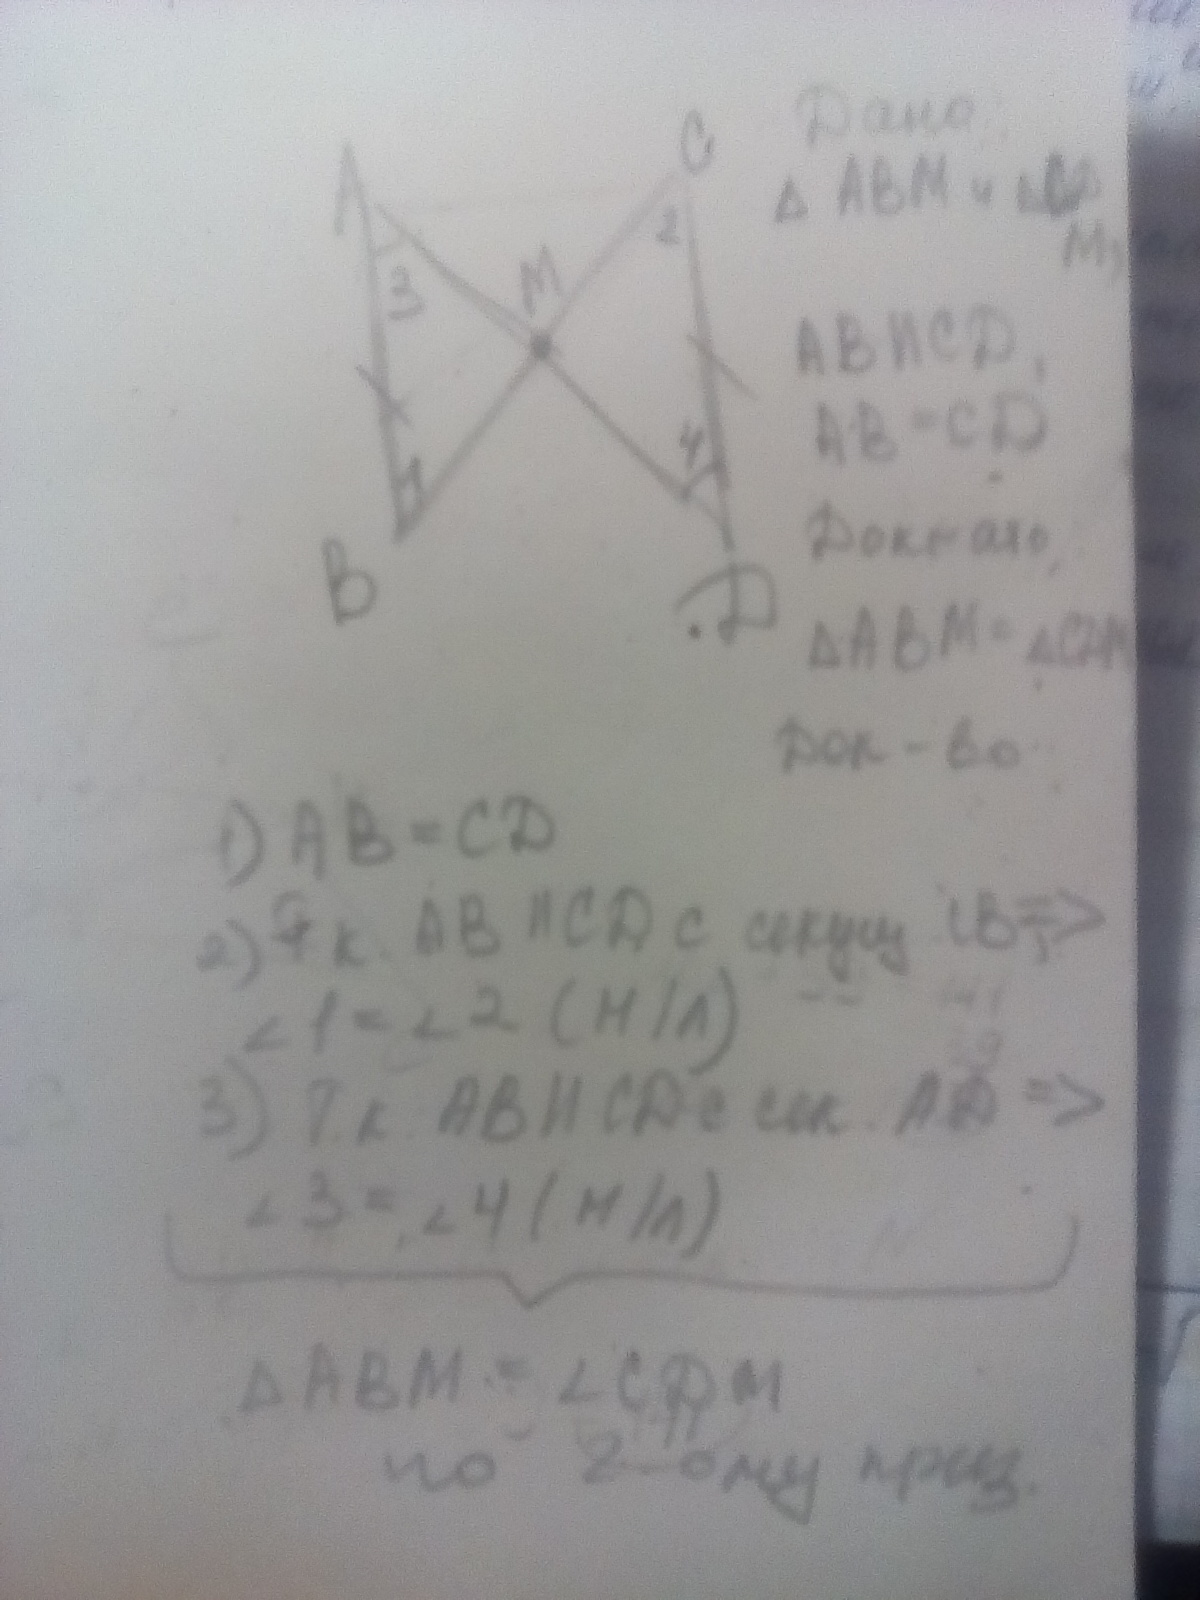 A
C
3
M
2
4
1
B
D
Дано:
Δ ABM и ΔCD
M,
AB||CD,
AB=CD
Док-ать
ΔABM=ΔCDM
Док-во
1) AB=CD
2) Т.к. AB||CD с секущ CB=>
∠1=∠2 (Н/Л)
3) Т.к. AB||CD с сек. AD =>
∠3=∠4 (Н/Л)
ΔABM = ∠CDM
по 2-ому приз.